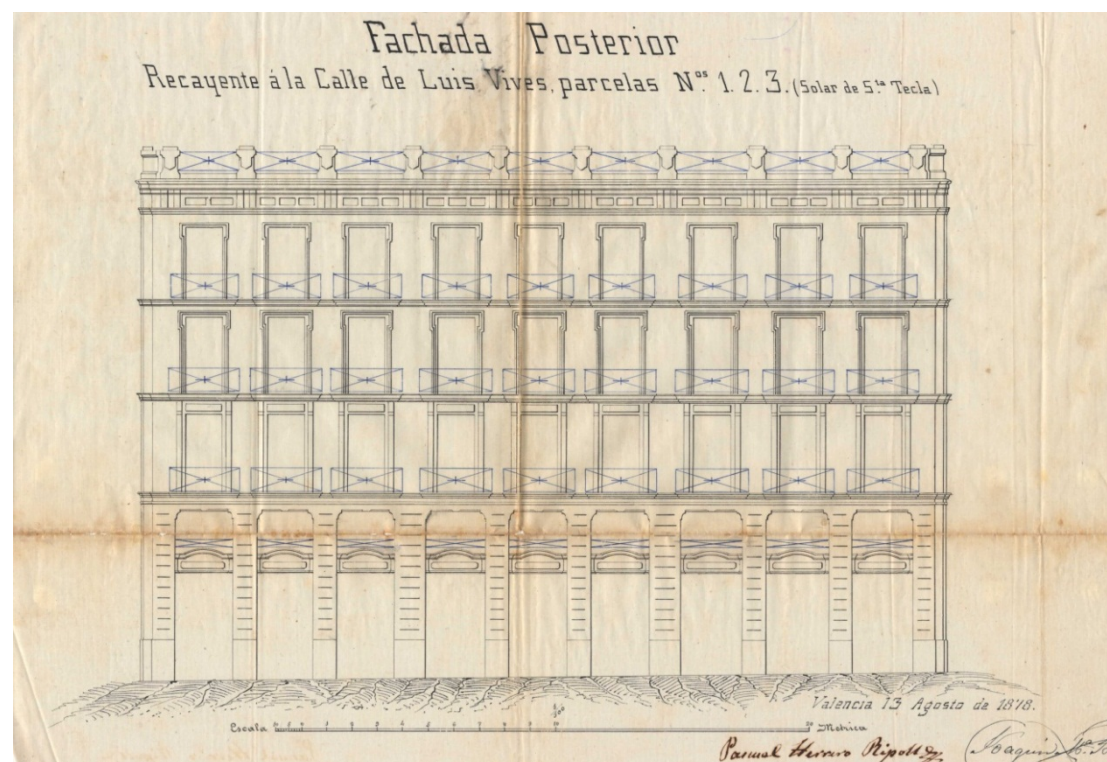 Fachada Posterior
Recayente á la Calle de Luis Vives, parcelas N.os 1. 2. 3. (Solar de S.ta Tecla)
Valencia 13 Agosto de 1878.
Escala 1 2 3 4 5 6 7 8 9 10 20 Metrica
1/100
Pascual Herrero Ripoll
Joaquin